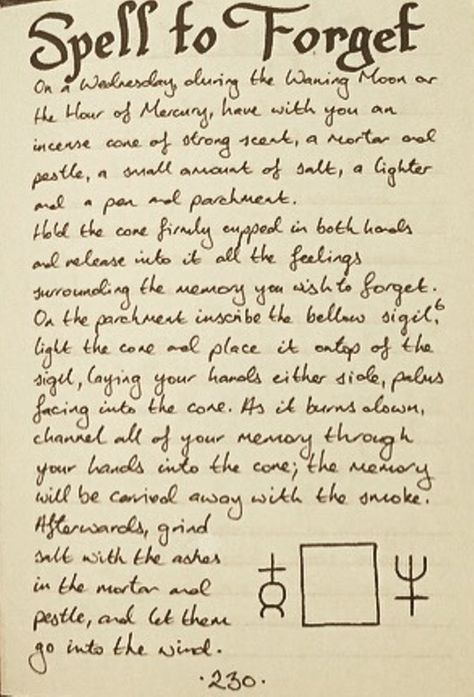 Spell to Forget
On a Wednesday, during the Waning Moon or
the Hour of Mercury, have with you an
incense cone of strong scent, a mortar and
pestle, a small amount of salt, a lighter
and a pen and parchment.
Hold the cone firmly cupped in both hands
and release into it all the feelings
surrounding the memory you wish to forget.
On the parchment inscribe the bellow sigil,⁶
light the cone and place it ontop of the
sigil, laying your hands either side, palms
facing into the cone. As it burns down,
channel all of your memory through
your hands into the cone; the memory
will be carried away with the smoke.
Afterwards, grind
salt with the ashes
in the mortar and
pestle, and let them
go into the wind.
·230·